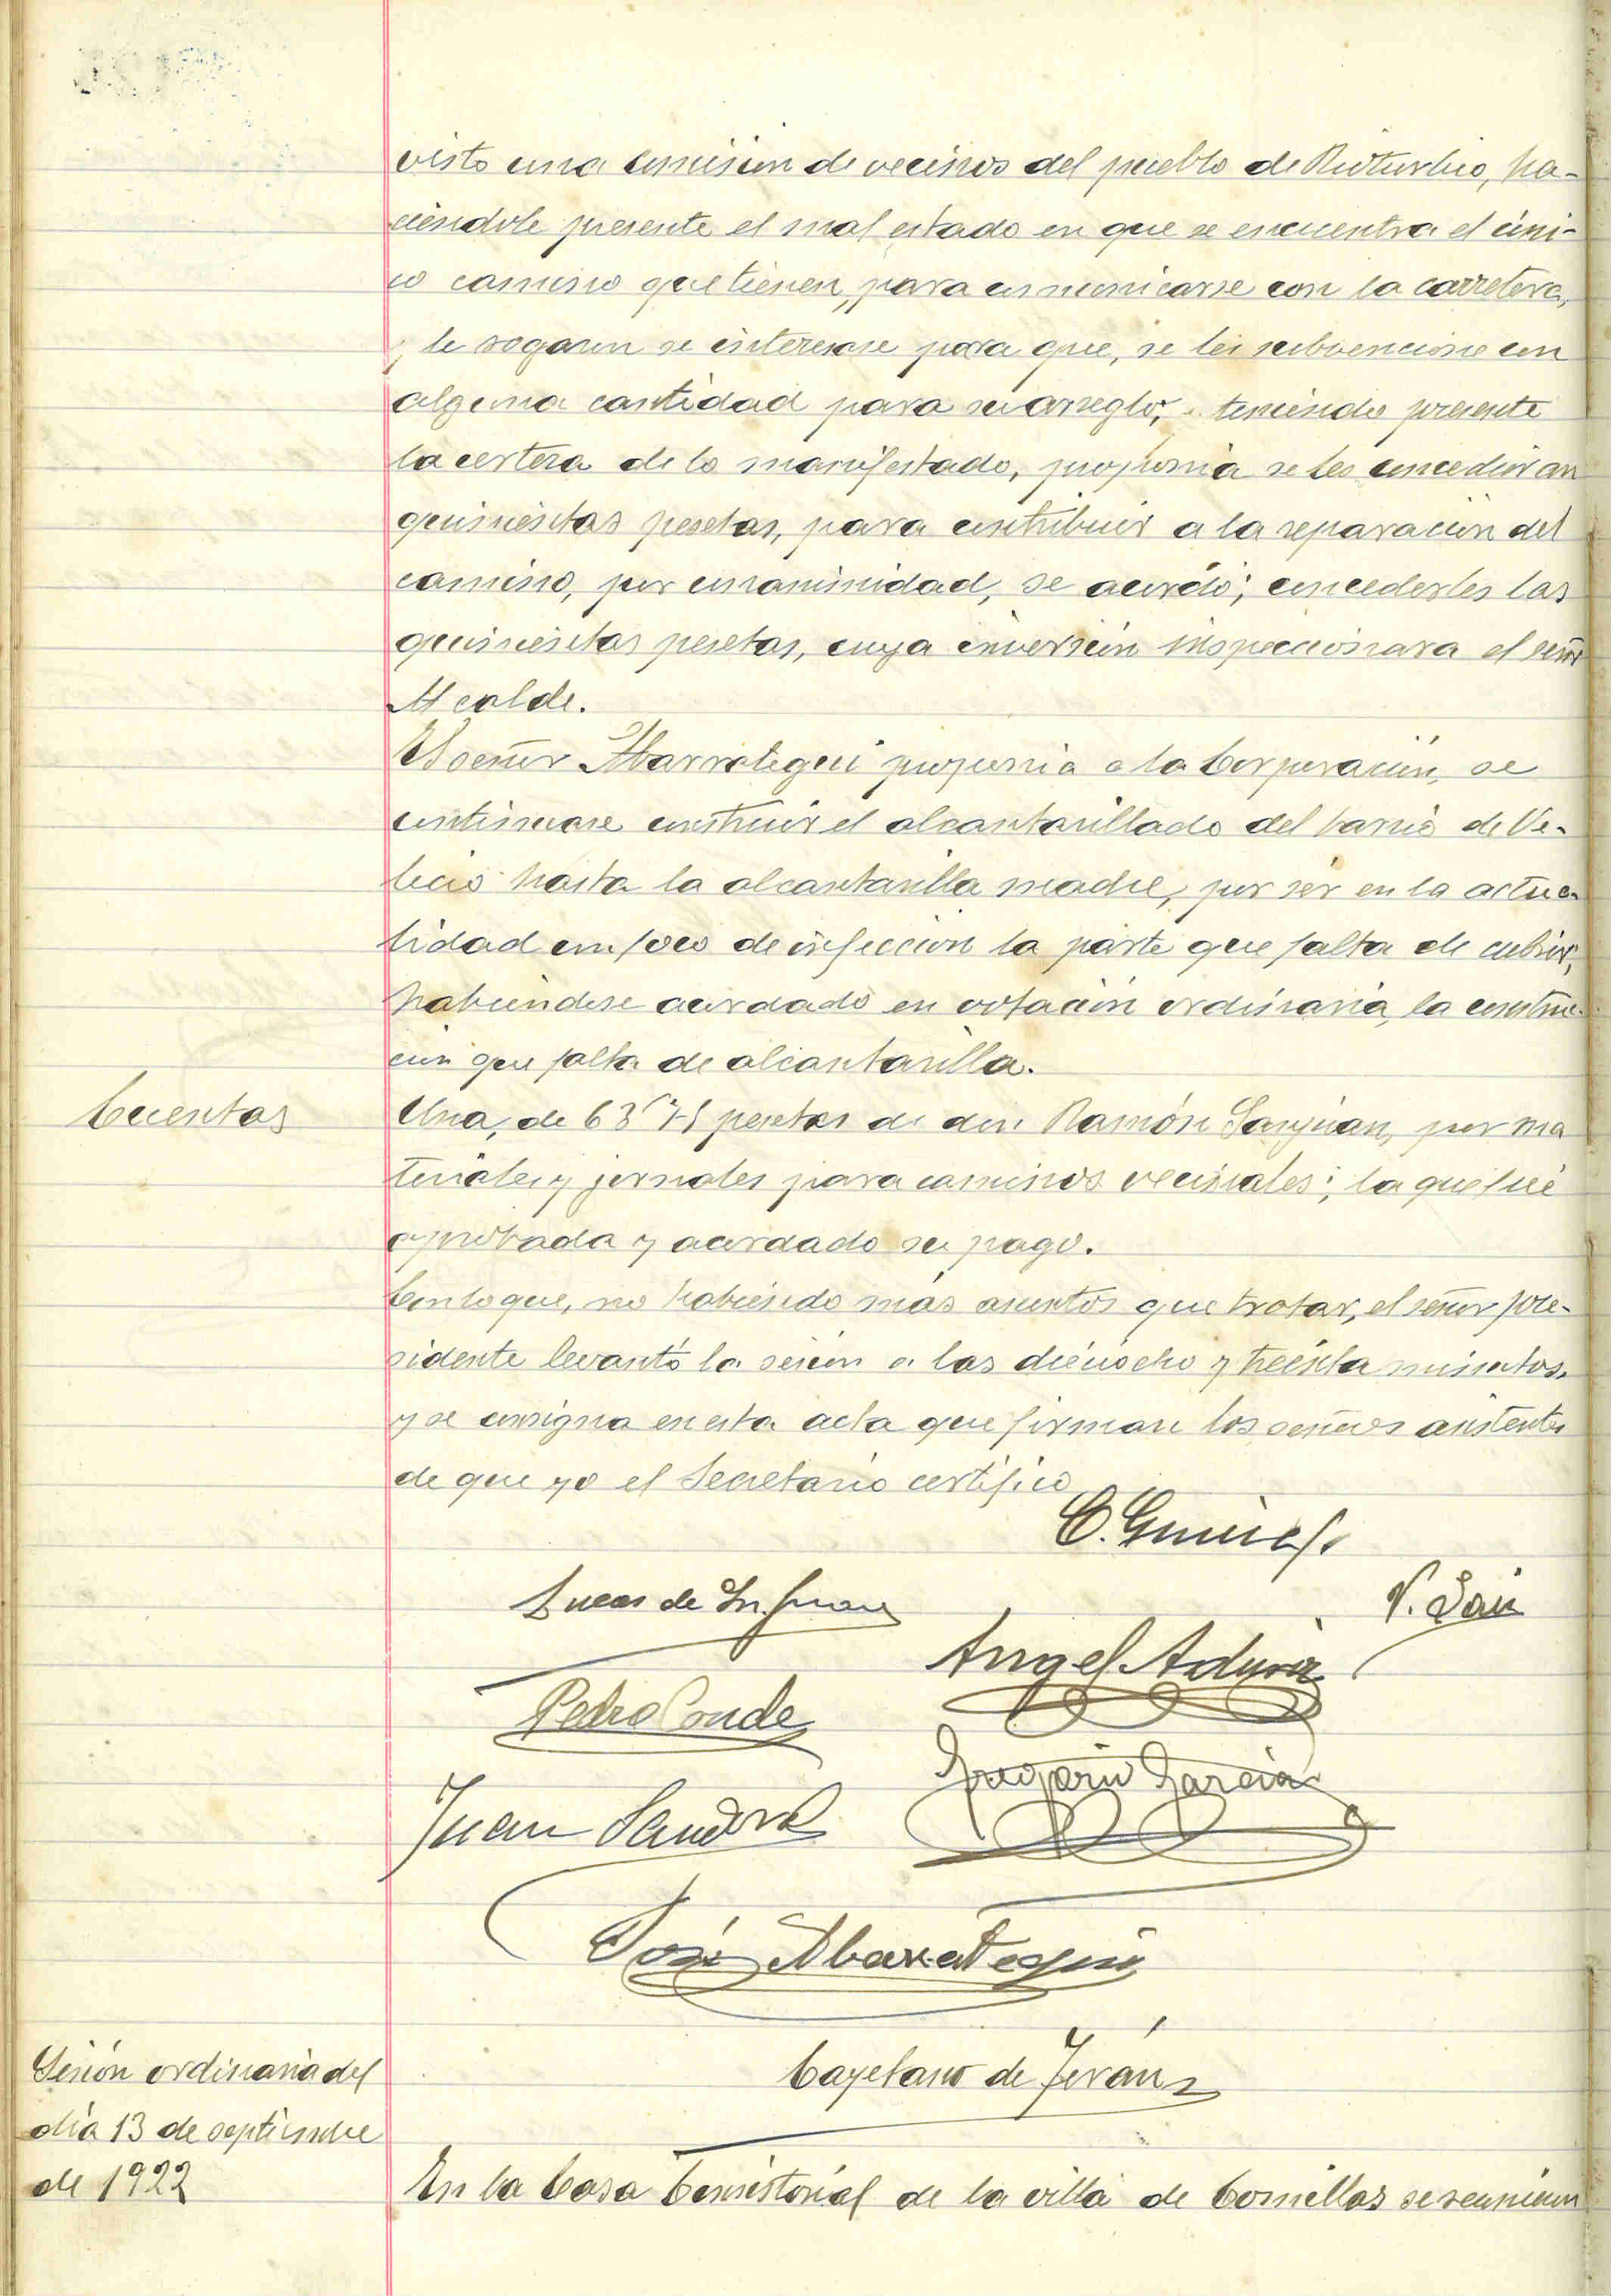 visto una comision de vecinos del pueblo de Rioturbio, ha-
ciendole presente el mal estado en que se encuentra el úni-
co camino que tienen, para comunicarse con la carretera,
y le rogaron se interesase para que, se les subvencione con
alguna cantidad para su arreglo, teniendo presente
la certeza de lo manifestado, proponia se les concedieran
quinientas pesetas, para contribuir a la reparación del
camino, por unanimidad, se acordó; concederles las
quinientas pesetas, cuya inversión inspeccionara el señor
Alcalde.
El señor Abarrategui proponia a la Corporación, se
continuase construir el alcantarillado del barrio de Ve-
lecio hasta la alcantarilla madre, por ser en la actua-
lidad un foco de infeccion la parte que falta de cubrir,
habiendose acordado en votación ordinaria, la construc-
ción que falta de alcantarilla.
Cuentas
Una, de 63 pesetas de don Ramón Sanjuan, por ma
teriales y jornales para caminos vecinales; la que fué
aprobada y acordado su pago.
Con lo que, no habiendo mas asuntos que tratar, el señor pre-
sidente levantó la sesion a las dieciocho y treinta minutos,
y se consigna en esta acta que firman los señores asistentes
de que yo el Secretario certifico
Lucas de
Angel
Pedro Conde
Gregorio Garcia
Juan
José Abarrategui
Cayetano de Terán
Sesión ordinaria del
dia 13 de septiembre
de 1922
En la Casa Consistorial de la villa de Comillas se reunieron